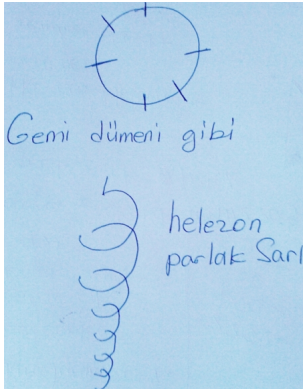 Gemi dümeni gibi
helezon
parlak Sarı